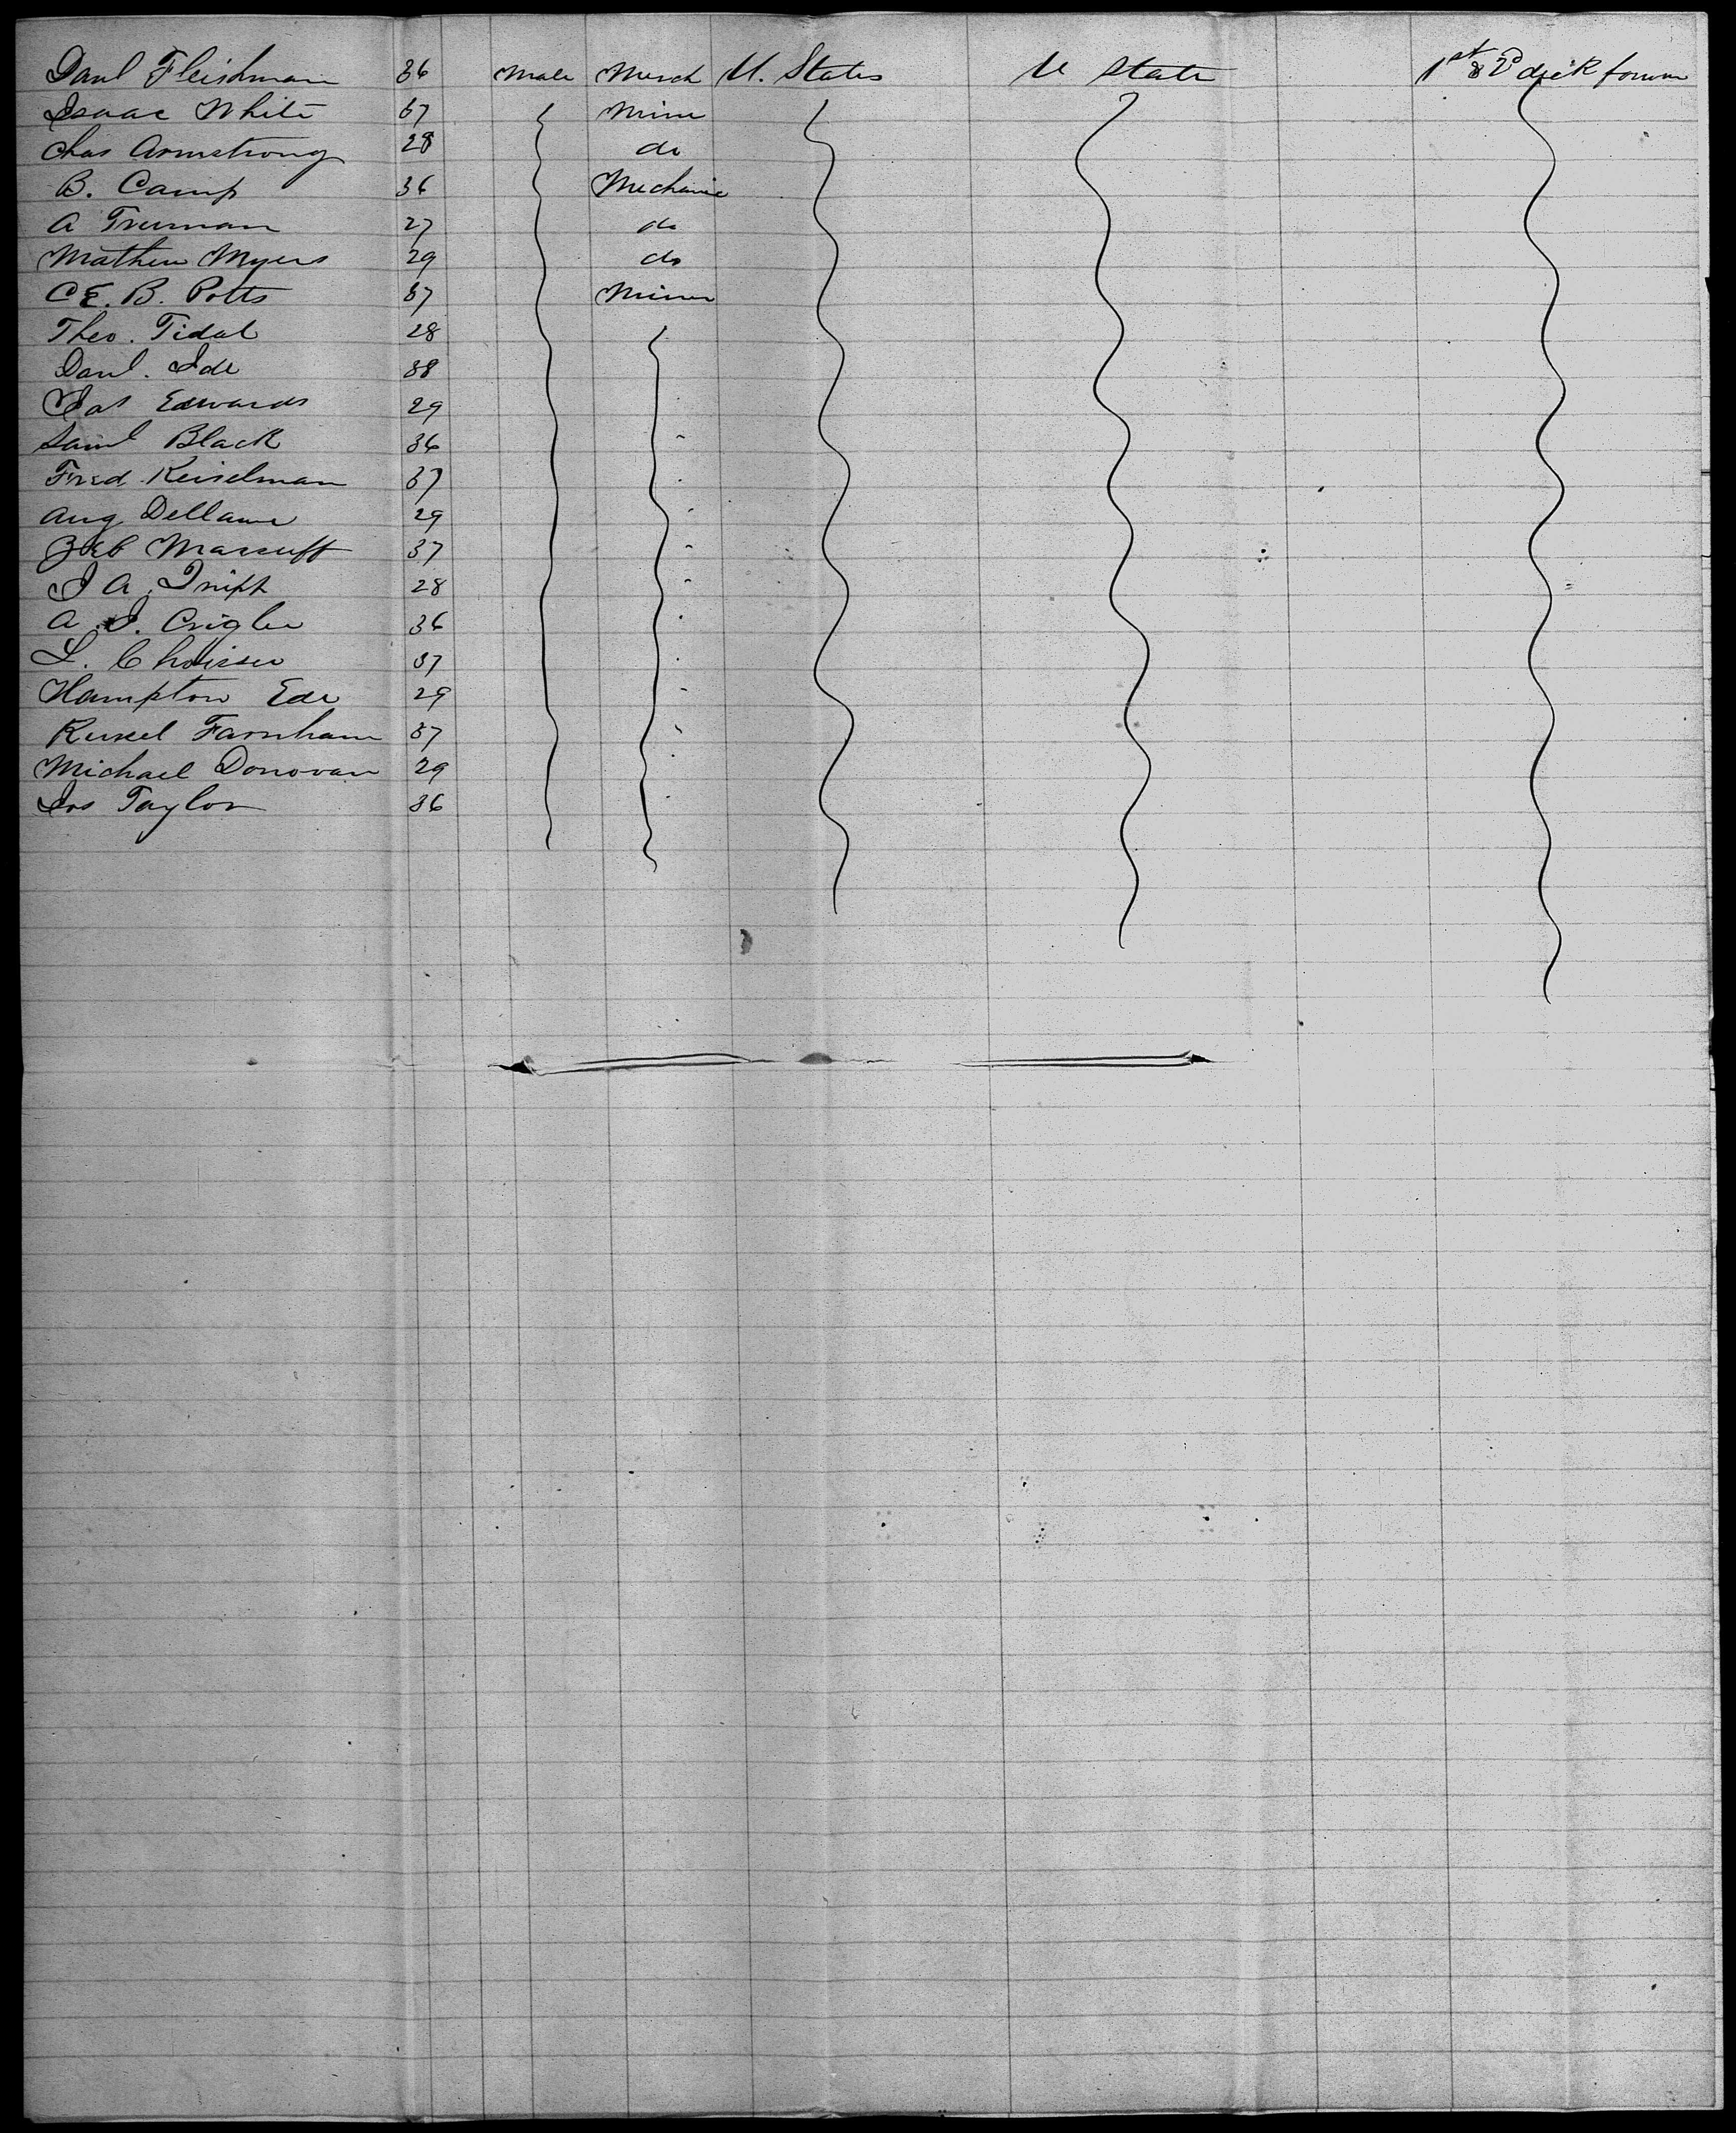 Danl Fleishman 36 Male Merch U. States U State 1st & 2d deck forwn
Isaac White 37 Mine
Chas Armstrong 28 do
B. Camp 36 Mechanic
A Truman 27 do
Mathew Myers 29 do
C E. B. Potts 37 Miner
Theo. Tidal 28
Danl. Ide 38
Jas Edwards 29
Saml Black 36
Fred Keiselman 37
Aug Dellame 29
Zeb Marcuff 37
J A Tripp 28
A. J. Crigler 36
L. Choisser 37
Hampton Ede 29
Russel Farnham 37
Michael Donovan 29
Jos Taylor 36